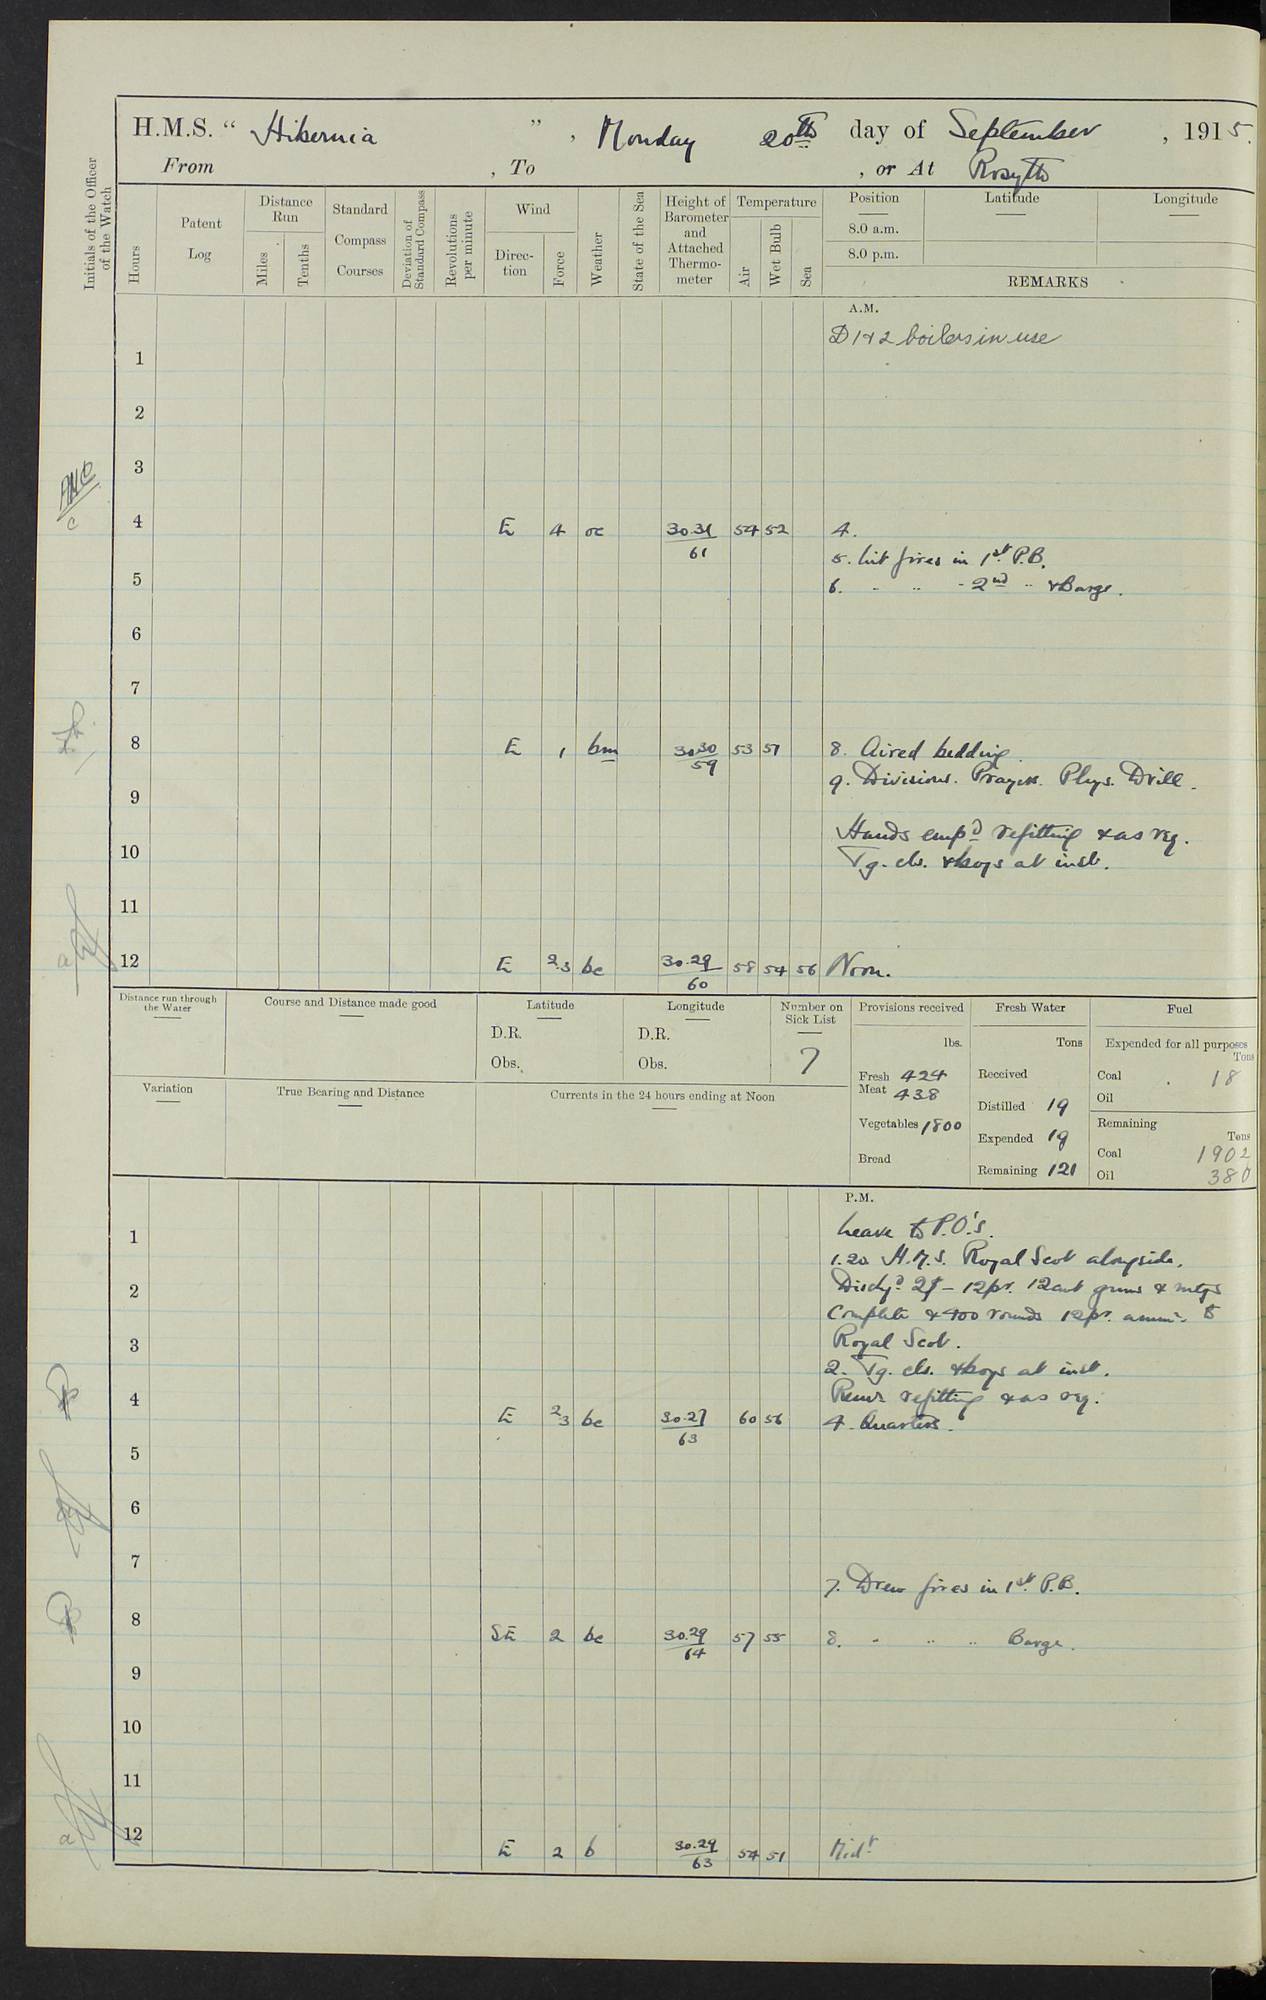 H.M.S. “ Hibernia ” , Monday 20th day of September , 1915.
From , To , or At Rosyth
Initials of the Officer of the Watch
Hours
Patent Log
Distance Run
Miles
Tenths
Standard Compass Courses
Deviation of Standard Compass
Revolutions per minute
Wind
Direction
Force
Weather
State of the Sea
Height of Barometer and Attached Thermometer
Temperature
Air
Wet Bulb
Sea
Position Latitude Longitude
8.0 a.m.
8.0 p.m.
REMARKS
A.M.
D 1 & 2 boilers in use
1
2
3
4 E 4 oc 30.31/61 54 52 4.
5. Lit fires in 1st P.B.
5
6. " " " 2nd " & Barge.
6
7
8 E 1 bm 30.30/59 53 51 8. Aired bedding.
9. Divisions. Prayers. Phys. Drill.
9
Hands emp'd refitting & as req.
10
Tg. cls. & boys at inst.
11
12 E 2.3 bc 30.29/60 58 54 56 Noon.
Distance run through the Water
Course and Distance made good
Latitude
D.R.
Obs.
Longitude
D.R.
Obs.
Number on Sick List
7
Variation
True Bearing and Distance
Currents in the 24 hours ending at Noon
Provisions received
lbs.
Fresh Meat 424
438
Vegetables 1800
Bread
Fresh Water
Tons
Received
Distilled 19
Expended 19
Remaining 121
Fuel
Expended for all purposes
Tons
Coal 18
Oil
Remaining
Tons
Coal 1902
Oil 380
P.M.
Leave to P.O's.
1
1.20 H.M.S. Royal Scot alongside.
2
Dischgd 2 – 12pr. 12cwt guns & mtgs
Complete & 400 rounds 12pr. ammn. to
3
Royal Scot.
2. Tg. cls. & boys at inst.
4
Remr refitting & as req.
E 2.3 bc 30.27/63 60 56 4. Quarters.
5
6
7
7. Drew fires in 1st P.B.
8 SE 2 bc 30.29/64 57 55 8. " " " Barge.
9
10
11
12 E 2 b 30.29/63 54 51 Midt